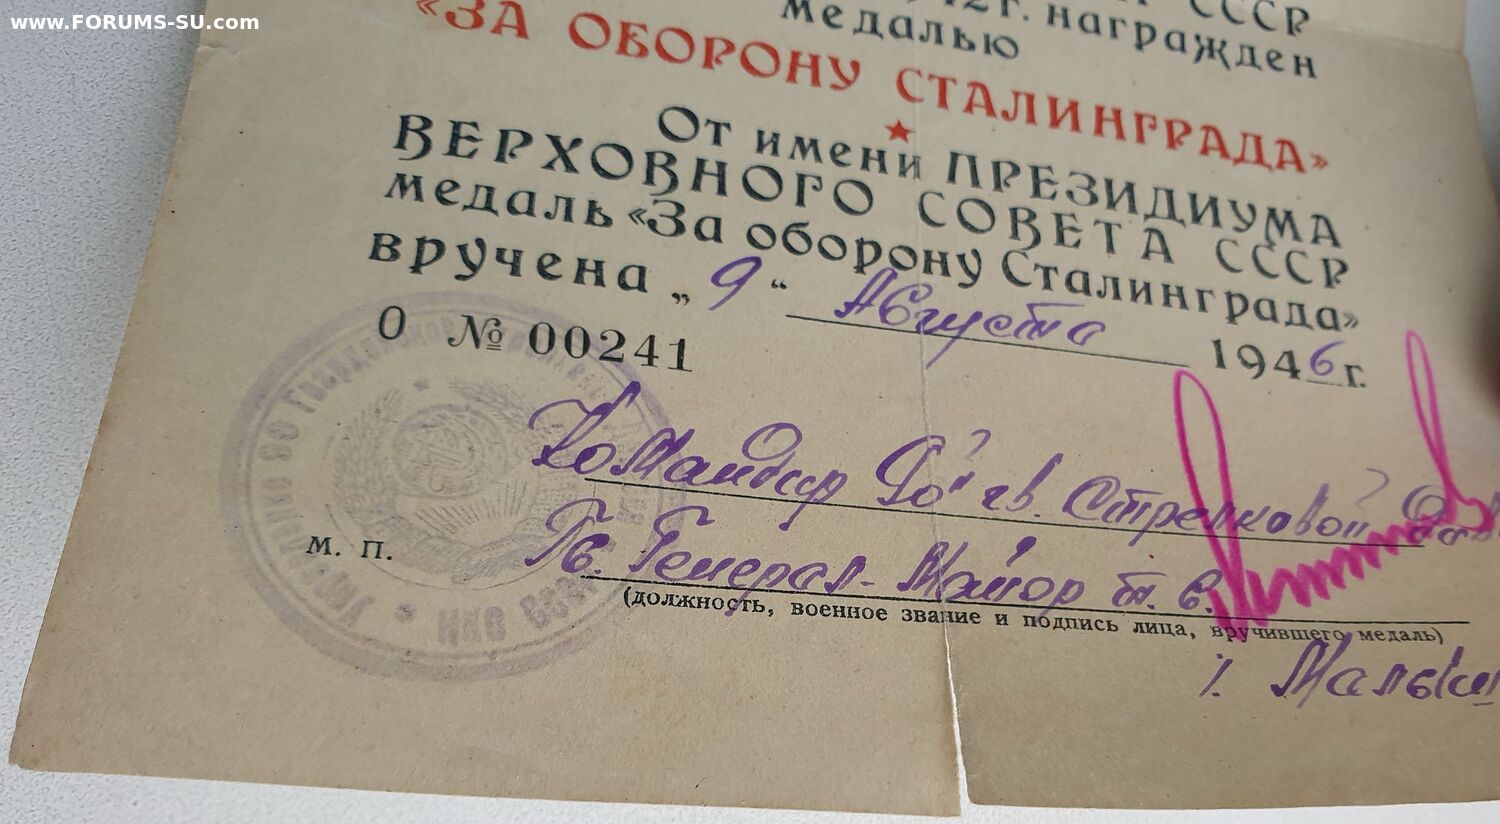 www.FORUMS-SU.com
СССР
2г. награжден
медалью
«ЗА ОБОРОНУ СТАЛИНГРАДА»
От имени ПРЕЗИДИУМА
ВЕРХОВНОГО СОВЕТА СССР
медаль «За оборону Сталинграда»
вручена „9“ Августа 1946 г.
О № 00241
Командир гв. Стрелковой
Гв. Генерал-Майор т. в.
М. П.
(должность, военное звание и подпись лица, вручившего медаль)
НКО СССР